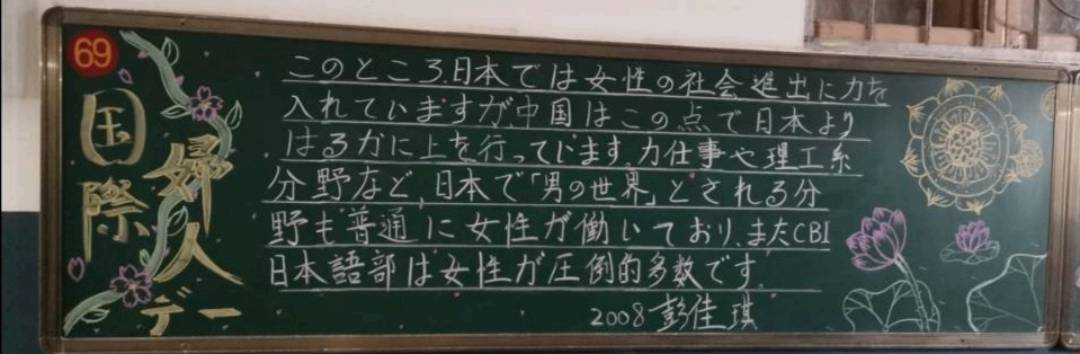 69
国際
婦人
デー
このところ、日本では女性の社会進出に力を
入れていますが、中国はこの点で日本より
はるかに上を行っています。力仕事や理工系
分野など、日本で「男の世界」とされる分
野も普通に女性が働いており、またCBI
日本語部は女性が圧倒的多数です。
2008 彭佳琪